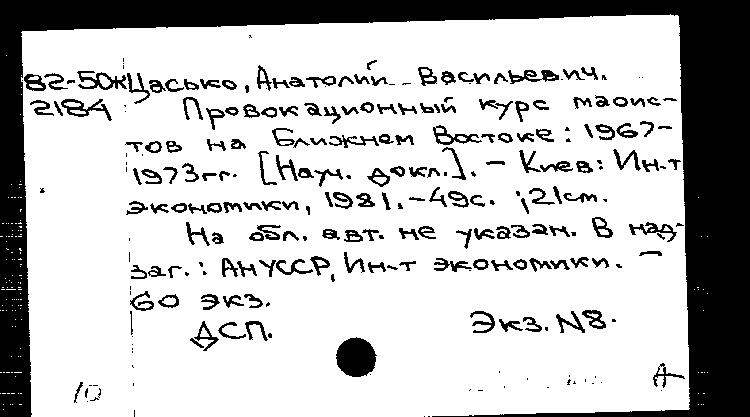 82-50к Цасько, Анатолий Васильевич.
2184 Провокационный курс маоис-
тов на Ближнем Востоке: 1967-
1973гг. [Науч. докл.]. – Киев: Ин-т
экономики, 1981. – 49с. ; 21см.
На обл. авт. не указан. В над-
заг.: АН УССР, Ин-т экономики. –
60 экз.
ДСП. Экз. N8.
10 А